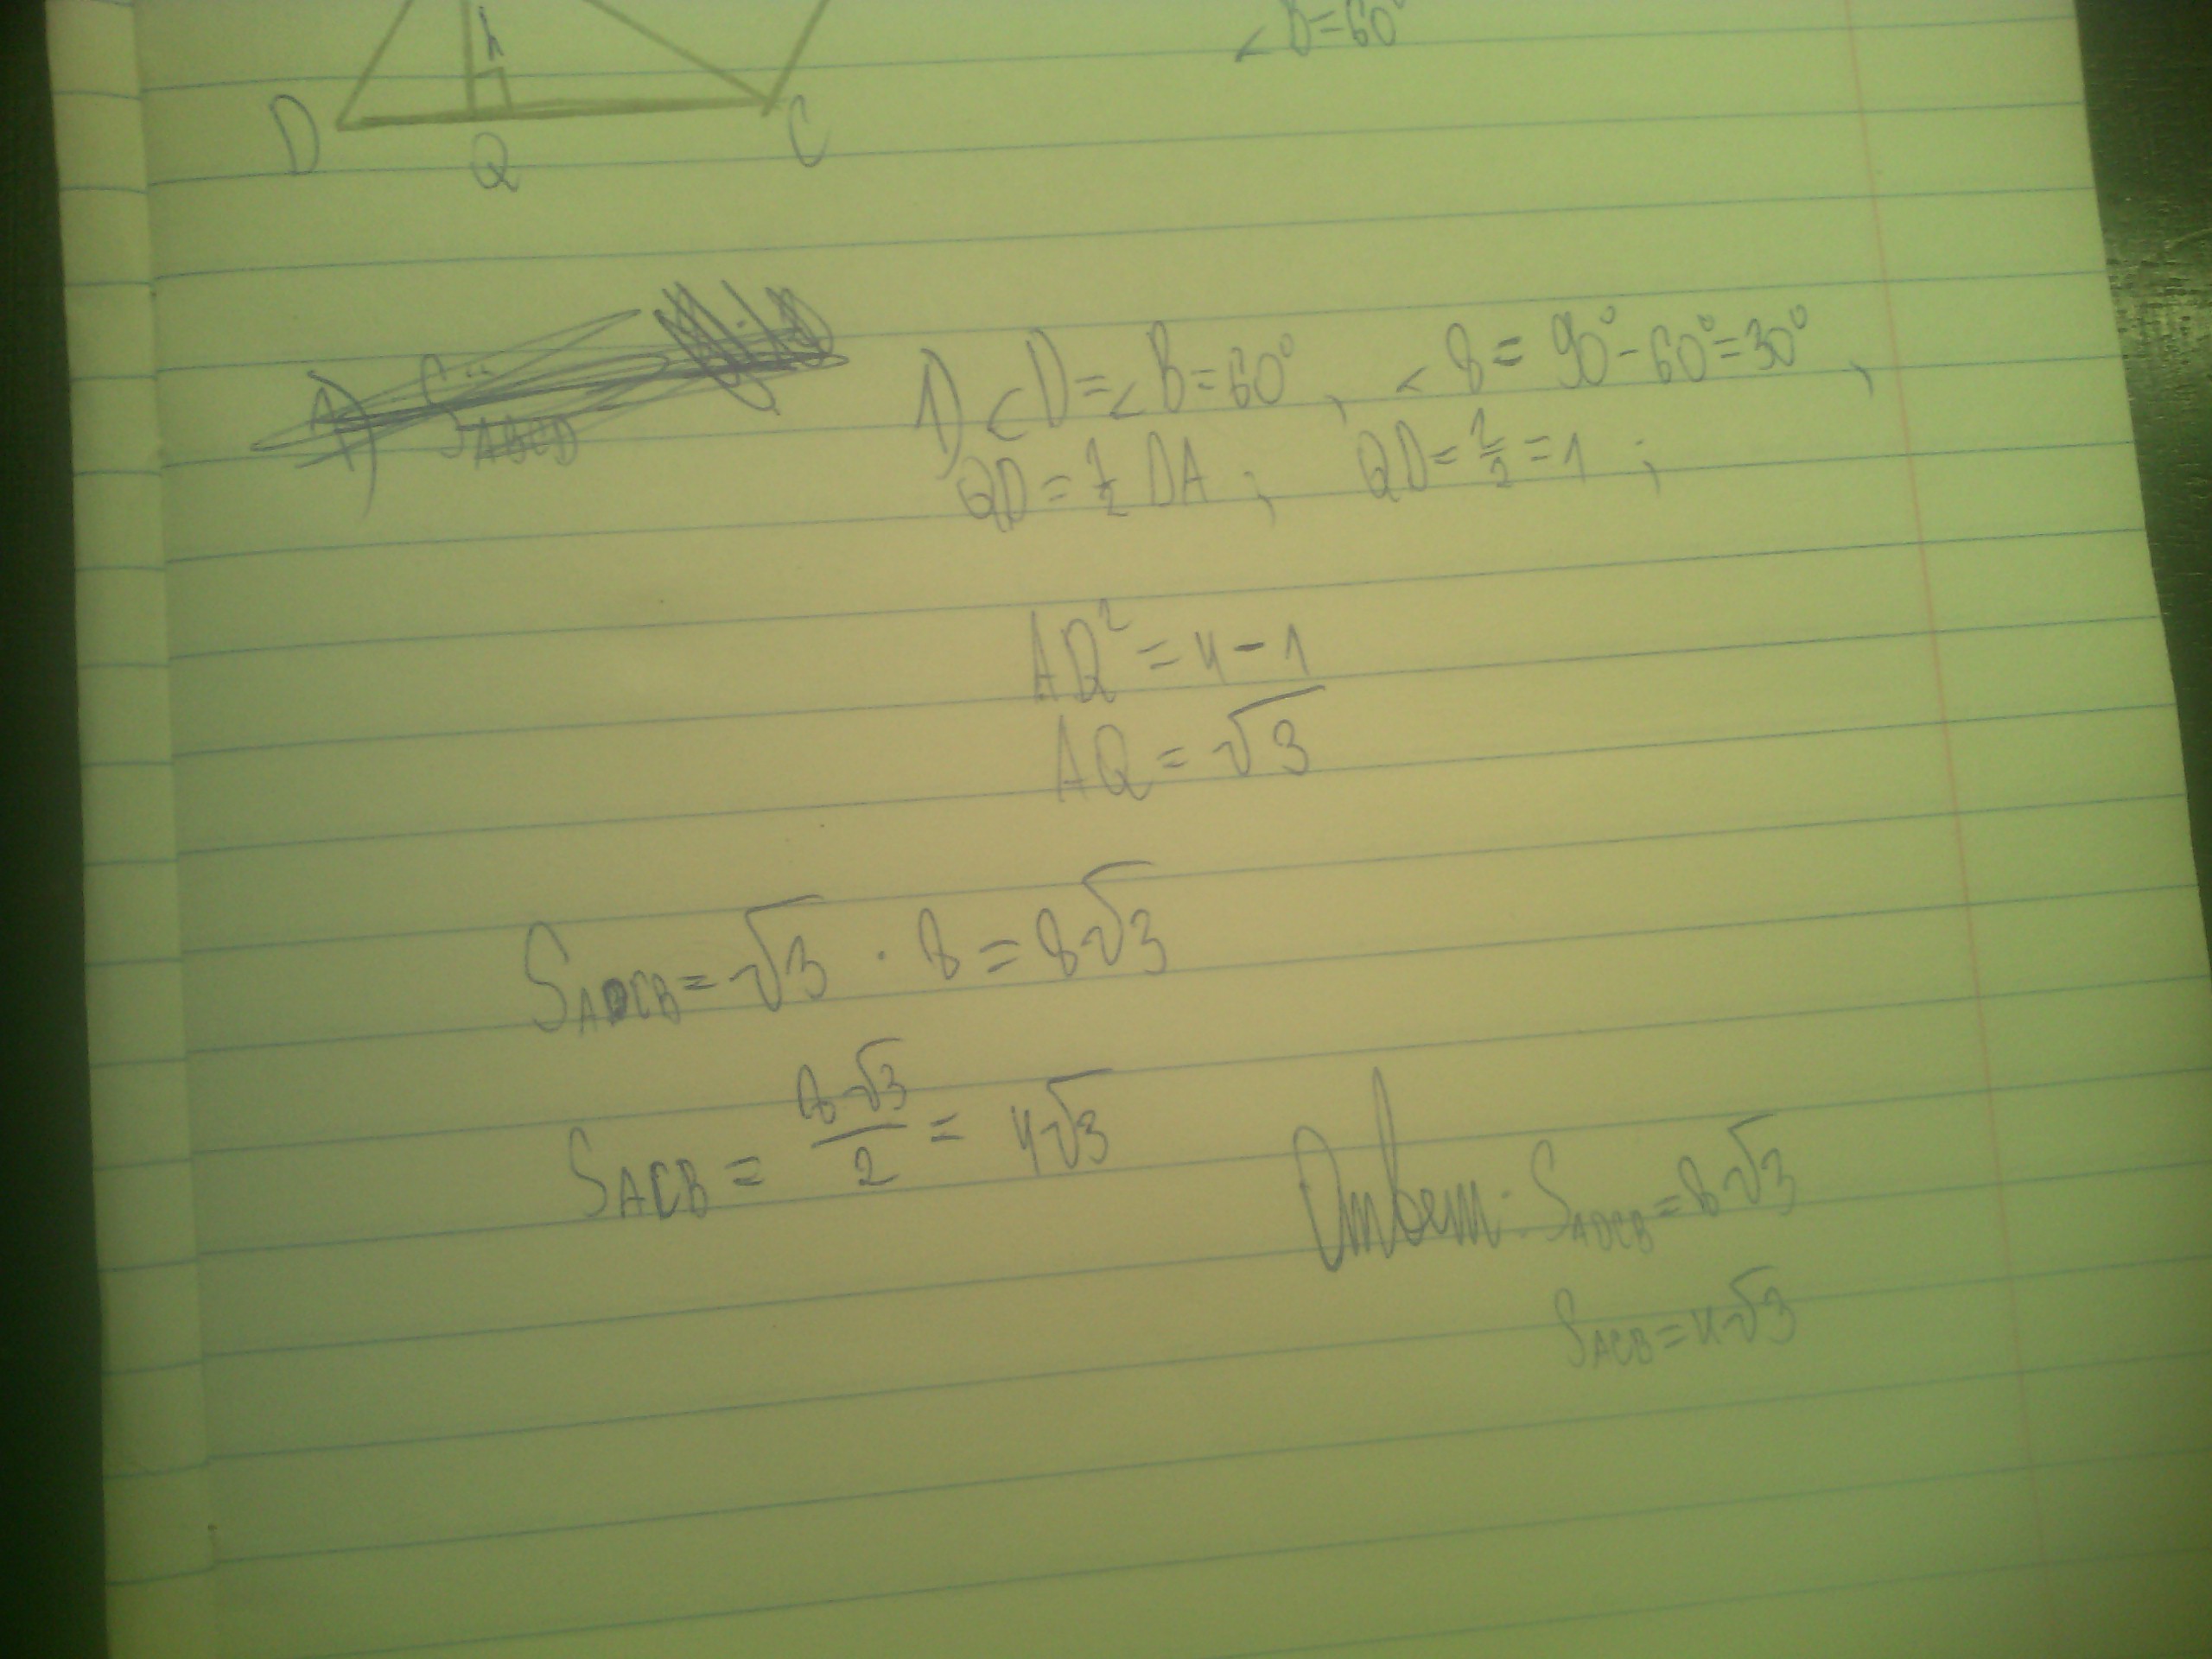 h
∠D=60°
D
Q
C
1) ∠D=∠B=60°, ∠8= 90°-60°=30°,
QD=½ DA; QD=2/2=1;
AQ²=4-1
AQ=√3
S ADCB=√3 · 8=8√3
S ACB= 8·√3/2 = 4√3
Ответ: S ADCB=8√3
S ACB=4√3